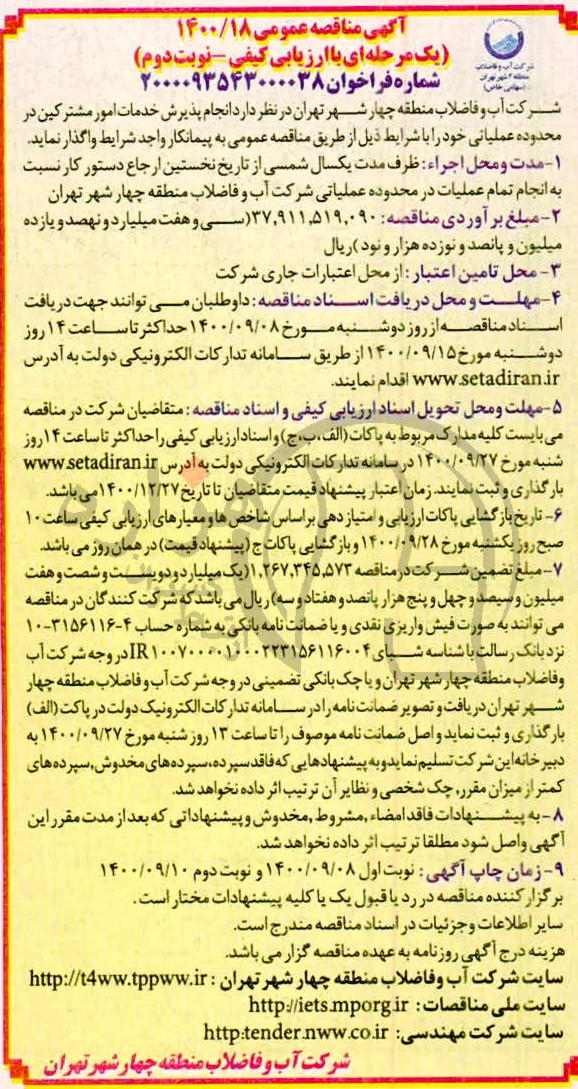 آگهی مناقصه عمومی ۱۴۰۰/۱۸
(یک مرحله‌ای با ارزیابی کیفی – نوبت دوم)
شماره فراخوان ۲۰۰۰۰۹۳۵۴۳۰۰۰۰۳۸
شرکت آب و فاضلاب
منطقه ۴ شهر تهران
(سهامی خاص)
شرکت آب و فاضلاب منطقه چهار شهر تهران در نظر دارد انجام پذیرش خدمات امور مشترکین در
محدوده عملیاتی خود را با شرایط ذیل از طریق مناقصه عمومی به پیمانکار واجد شرایط واگذار نماید.
۱- مدت و محل اجراء: ظرف مدت یکسال شمسی از تاریخ نخستین ارجاع دستور کار نسبت
به انجام تمام عملیات در محدوده عملیاتی شرکت آب و فاضلاب منطقه چهار شهر تهران
۲- مبلغ برآوردی مناقصه: ۳۷,۹۱۱,۵۱۹,۰۹۰ (سی و هفت میلیارد و نهصد و یازده
میلیون و پانصد و نوزده هزار و نود) ریال
۳- محل تامین اعتبار: از محل اعتبارات جاری شرکت
۴- مهلت و محل دریافت اسناد مناقصه: داوطلبان می توانند جهت دریافت
اسناد مناقصه از روز دوشنبه مورخ ۱۴۰۰/۰۹/۰۸ حداکثر تا ساعت ۱۴ روز
دوشنبه مورخ ۱۴۰۰/۰۹/۱۵ از طریق سامانه تدارکات الکترونیکی دولت به آدرس
www.setadiran.ir اقدام نمایند.
۵- مهلت و محل تحویل اسناد ارزیابی کیفی و اسناد مناقصه: متقاضیان شرکت در مناقصه
می بایست کلیه مدارک مربوط به پاکات (الف، ب، ج) و اسناد ارزیابی کیفی را حداکثر تا ساعت ۱۴ روز
شنبه مورخ ۱۴۰۰/۰۹/۲۷ در سامانه تدارکات الکترونیکی دولت به آدرس www.setadiran.ir
بارگذاری و ثبت نمایند. زمان اعتبار پیشنهاد قیمت متقاضیان تا تاریخ ۱۴۰۰/۱۲/۲۷ می باشد.
۶- تاریخ بازگشایی پاکات ارزیابی و امتیازدهی بر اساس شاخص ها و معیارهای ارزیابی کیفی ساعت ۱۰
صبح روز یکشنبه مورخ ۱۴۰۰/۰۹/۲۸ و بازگشایی پاکات ج (پیشنهاد قیمت) در همان روز می باشد.
۷- مبلغ تضمین شرکت در مناقصه ۱,۲۶۷,۳۴۵,۵۷۳ (یک میلیارد و دویست و شصت و هفت
میلیون و سیصد و چهل و پنج هزار پانصد و هفتاد و سه) ریال می باشد که شرکت کنندگان در مناقصه
می توانند به صورت فیش واریزی نقدی و یا ضمانت نامه بانکی به شماره حساب ۴-۳۱۵۶۱۱۶-۱۰
نزد بانک رسالت با شناسه شبای IR ۱۰۰۷۰۰۰۰۱۰۰۰۲۲۳۱۵۶۱۱۶۰۰۴ در وجه شرکت آب
وفاضلاب منطقه چهار شهر تهران و یا چک بانکی تضمینی در وجه شرکت آب و فاضلاب منطقه چهار
شهر تهران دریافت و تصویر ضمانت نامه را در سامانه تدارکات الکترونیک دولت در پاکت (الف)
بارگذاری و ثبت نماید و اصل ضمانت نامه موصوف را تا ساعت ۱۳ روز شنبه مورخ ۱۴۰۰/۰۹/۲۷ به
دبیرخانه این شرکت تسلیم نماید و به پیشنهادهایی که فاقد سپرده، سپرده های مخدوش، سپرده های
کمتر از میزان مقرر، چک شخصی و نظایر آن ترتیب اثر داده نخواهد شد.
۸- به پیشنهادات فاقد امضاء، مشروط، مخدوش و پیشنهاداتی که بعد از مدت مقرر این
آگهی واصل شود مطلقا ترتیب اثر داده نخواهد شد.
۹- زمان چاپ آگهی: نوبت اول ۱۴۰۰/۰۹/۰۸ و نوبت دوم ۱۴۰۰/۰۹/۱۰
برگزار کننده مناقصه در رد یا قبول یک یا کلیه پیشنهادات مختار است.
سایر اطلاعات و جزئیات در اسناد مناقصه مندرج است.
هزینه درج آگهی روزنامه به عهده مناقصه گزار می باشد.
سایت شرکت آب وفاضلاب منطقه چهار شهر تهران: http://t4ww.tppww.ir
سایت ملی مناقصات: http://iets.mporg.ir
سایت شرکت مهندسی: http:tender.nww.co.ir
شرکت آب و فاضلاب منطقه چهار شهر تهران